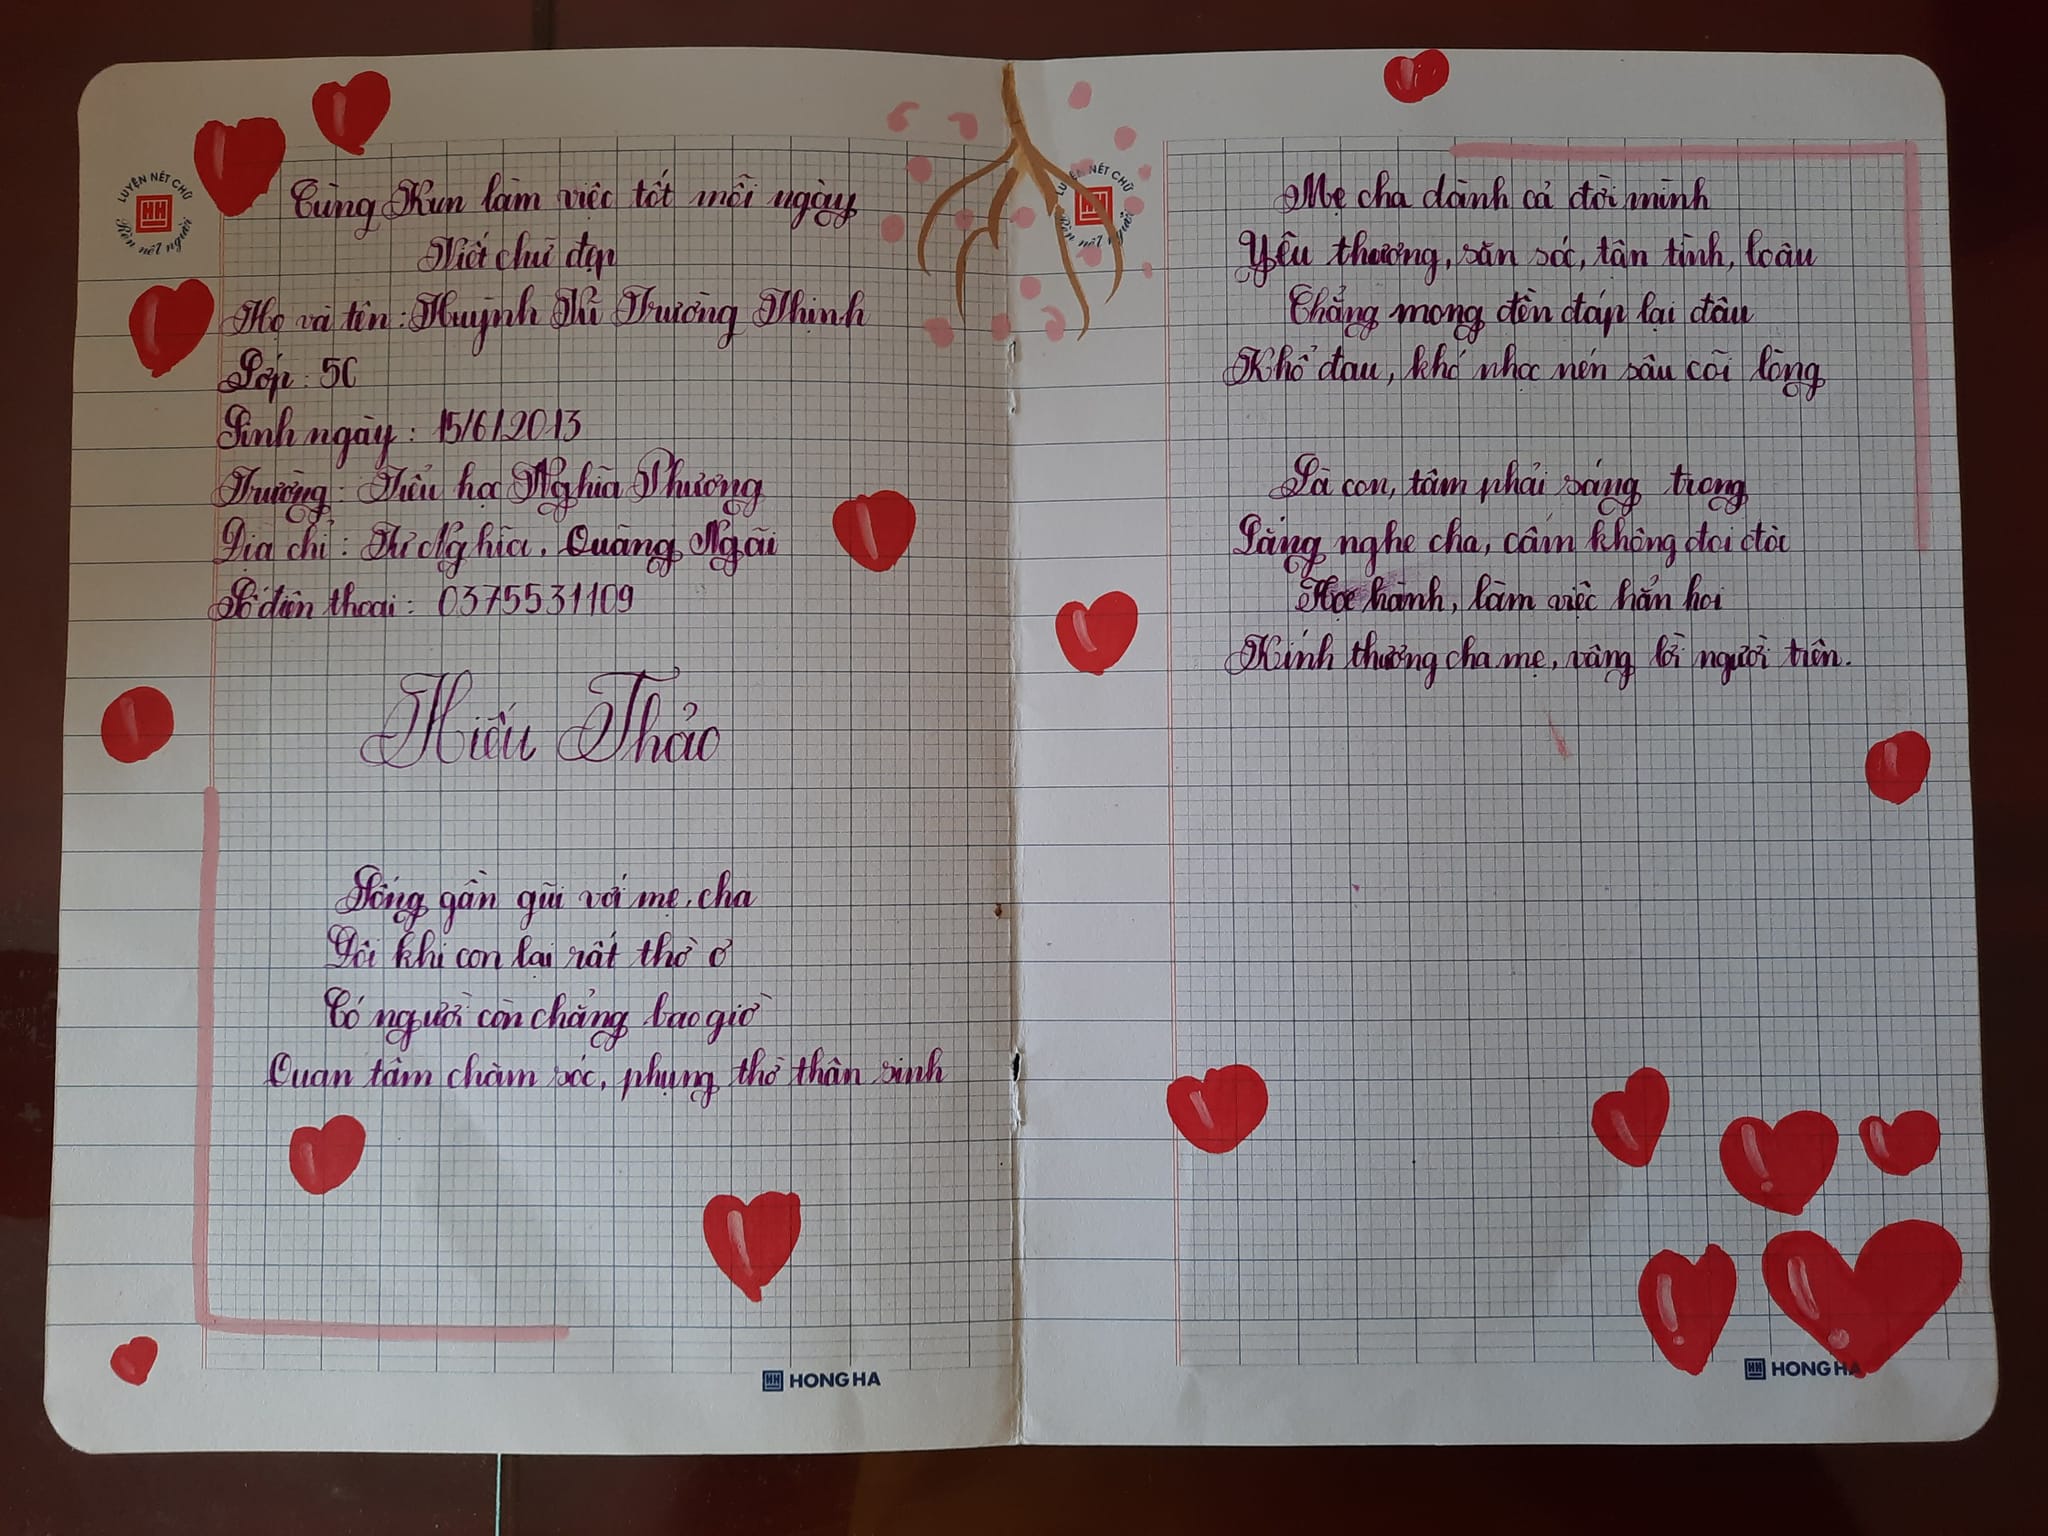 LUYỆN NÉT CHỮ
HH
Rèn nết người
Cùng Kun làm việc tốt mỗi ngày
Viết chữ đẹp
Họ và tên: Huỳnh Thị Trường Thịnh
Lớp: 5C
Sinh ngày: 15/6/2013
Trường: Tiểu học Nghĩa Phương
Địa chỉ: Tư Nghĩa, Quảng Ngãi
Số điện thoại: 0375531109
Hiếu Thảo
Sống gần gũi với mẹ, cha
Đôi khi con lại rất thờ ơ
Có người còn chẳng bao giờ
Quan tâm chăm sóc, phụng thờ thân sinh
HH HONG HA
LUYỆN NÉT CHỮ
HH
Rèn nết người
Mẹ cha dành cả đời mình
Yêu thương, săn sóc, tận tình, loâu
Chẳng mong đền đáp lại đâu
Khổ đau, khó nhọc nén sâu cõi lòng
Là con, tâm phải sáng trong
Lắng nghe cha, cấm không đòi
Học hành, làm việc hẳn hoi
Kính thương cha mẹ, vâng lời người trên.
HH HONG HA